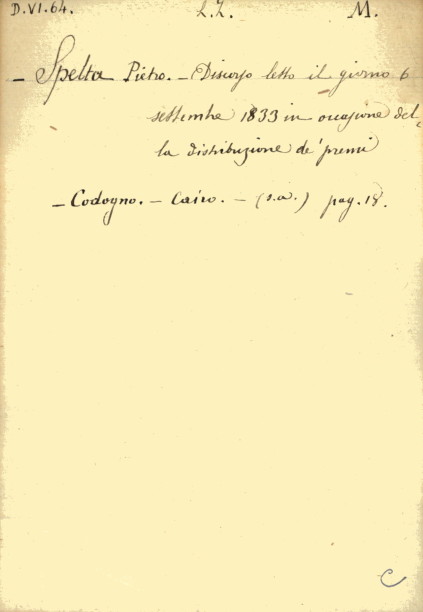 D.VI.64. L.Z. M.
– Spelta Pietro. – Discorso letto il giorno 6
settembre 1833 in occasione del-
la distribuzione de' premi
– Codogno. – Cairo. – (s.a.) pag. 18.
C